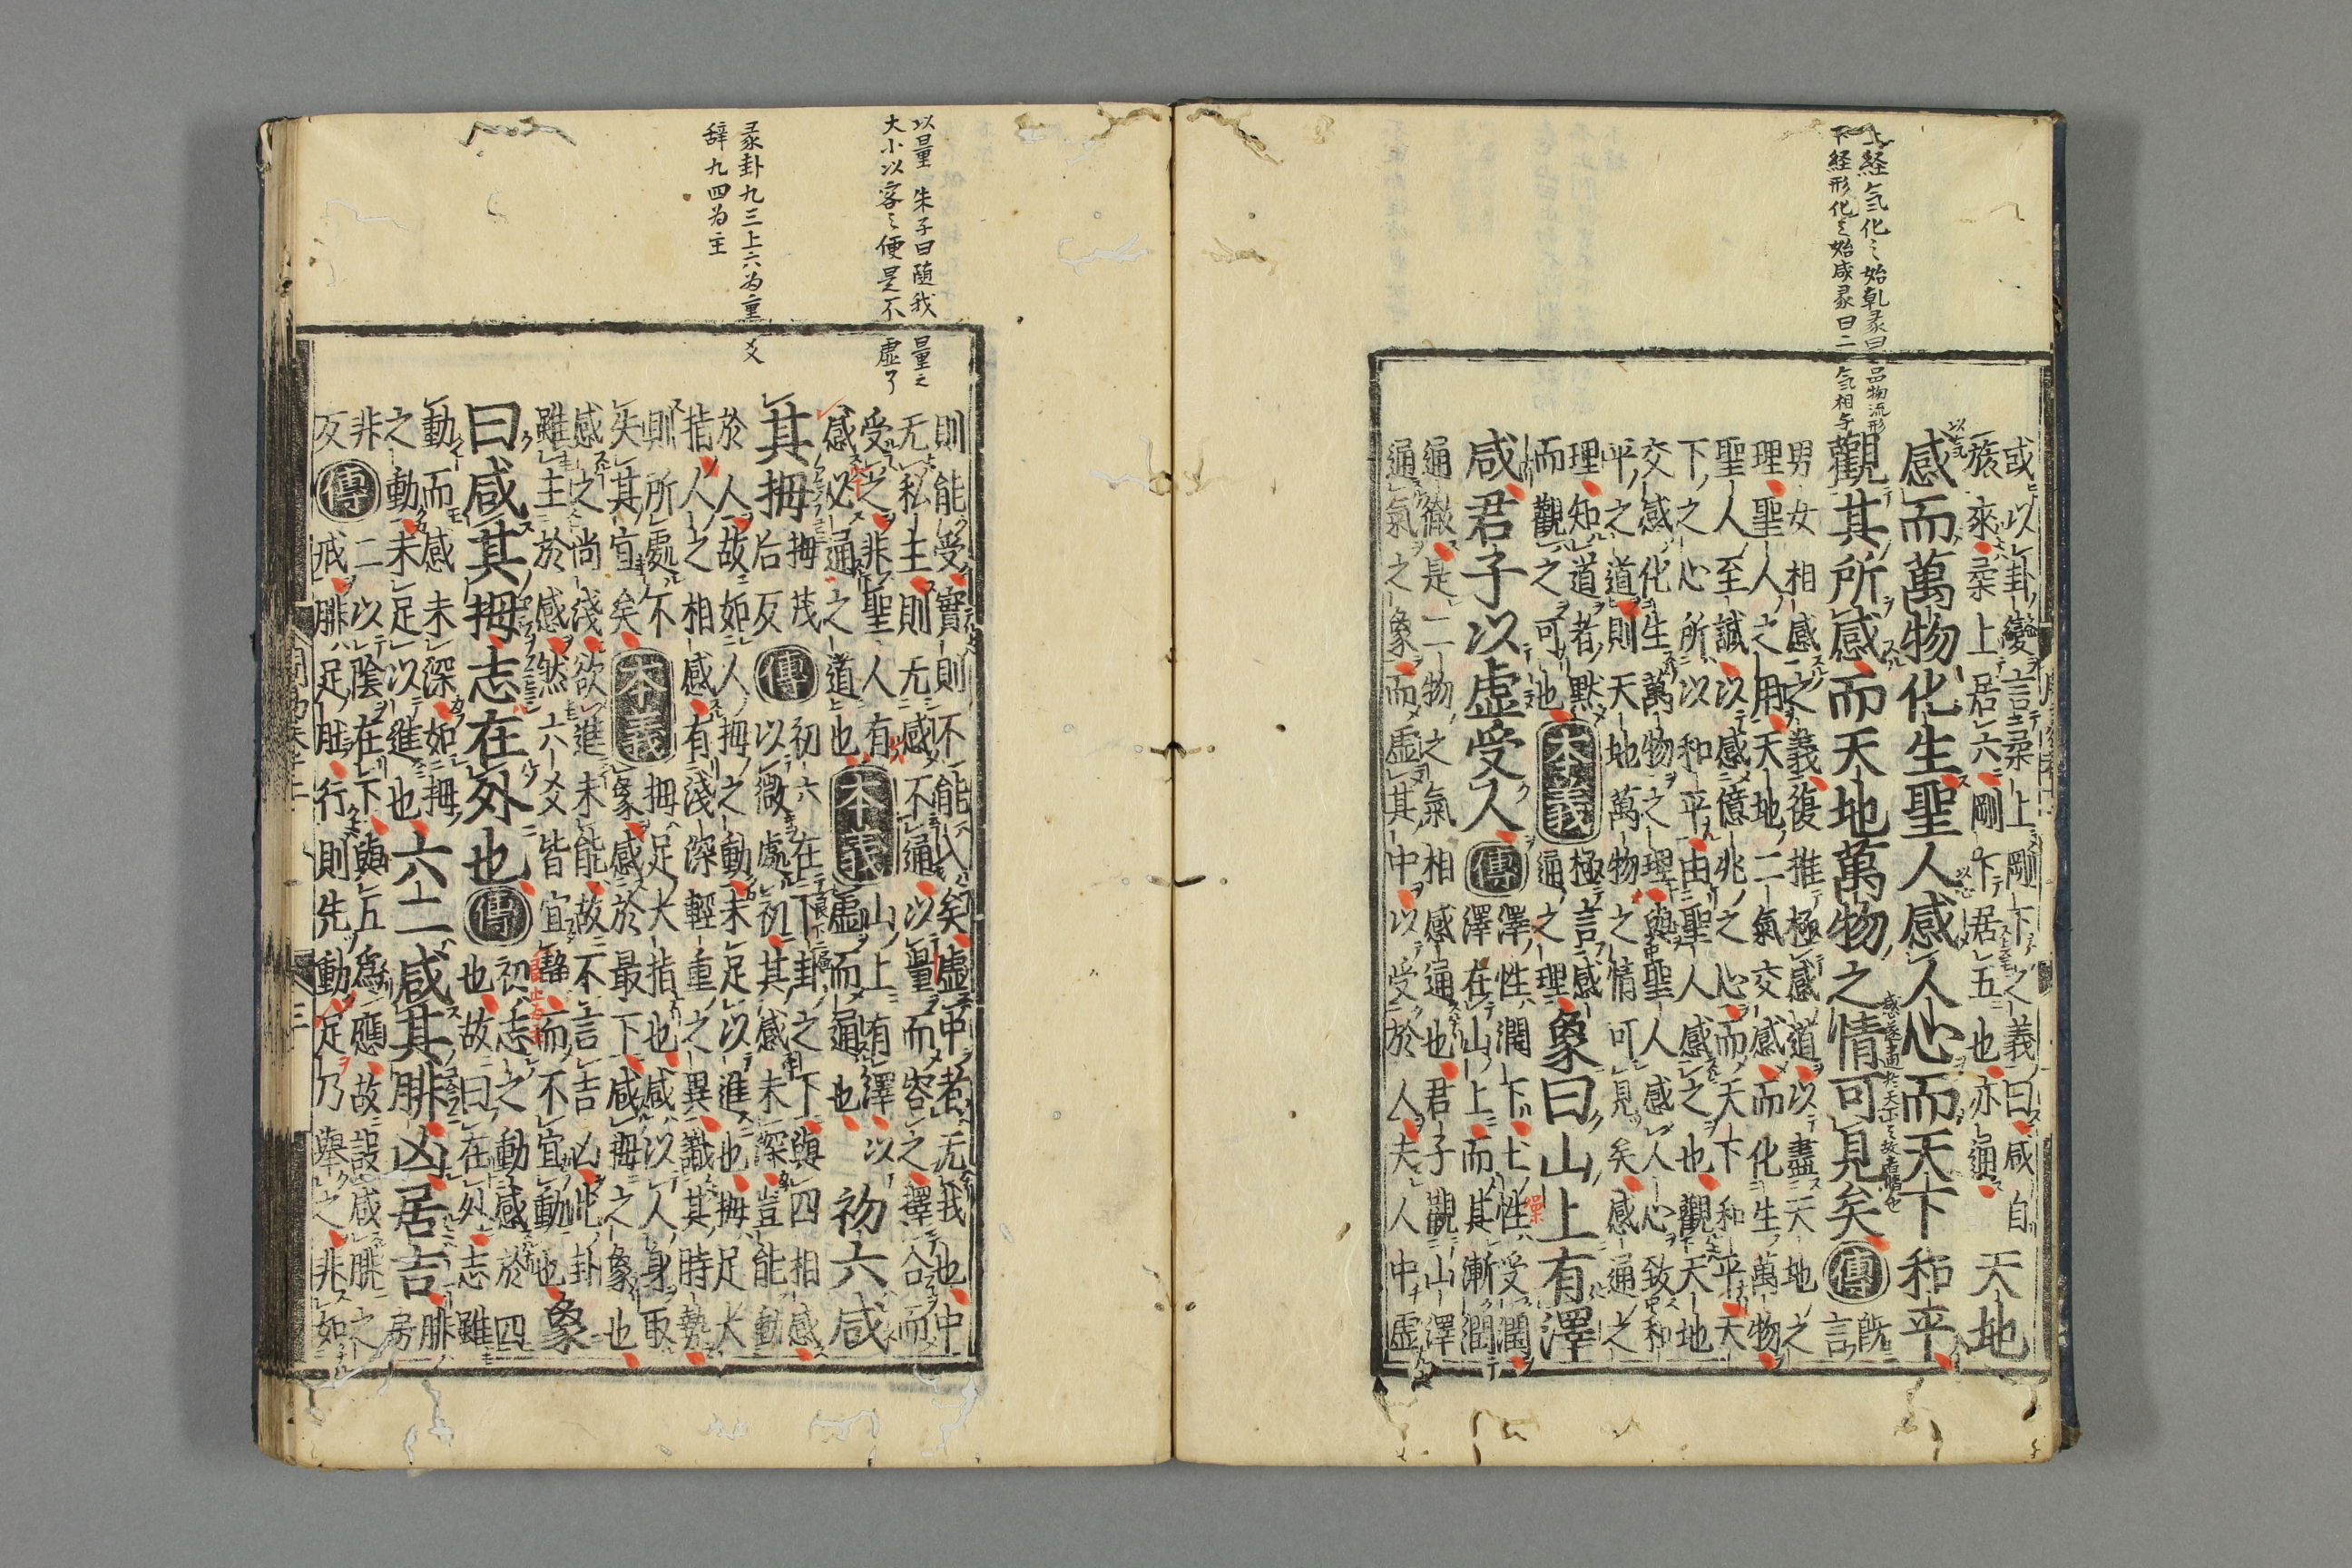 上経気化之始乾彖曰品物流形
下経形化之始咸彖曰二気相与
或以卦變言柔上剛下之義曰咸自
旅來柔上居六剛下居五也亦通
天地
感而萬物化生聖人感人心而天下和平
觀其所感而天地萬物之情可見矣傳既
言
男女相感之義復推極感道以盡天地之
理聖人之用天地二氣交感而化生萬物
聖人至誠以感億兆之心而天下和平天
下之心所以和平由聖人感之也觀天地
交感化生萬物之理與聖人感人心致和
平之道則天地萬物之情可見矣感通之
理知道者默
而觀之可也
本義
極言感
通之理
象曰山上有澤
咸君子以虛受人傳
澤性潤下土性受潤
澤在山上而其漸潤
通徹是二物之氣相感通也君子觀山澤
通氣之象而虛其中以受於人夫人中虛
以量 朱子曰随我量之
大小以容之便是不虚了
彖卦九三上六为重爻
辞九四为主
則能受實則不能入矣虛中者无我也中
无私主則无感不通以量而容之擇合而
受之非聖人有
感必通之道也
本義
山上有澤以
虛而通也
初六咸
其拇
拇茂
后反
傳
初六在下卦之下與四相感
以微處初其感未深豈能動
於人故如人拇之動未足以進也拇足大
指人之相感有淺深輕重之異識其時勢
則所處不
失其宜矣
本義
拇足大指也咸以人身取
象感於最下咸拇之象也
感之尚淺欲進未能故不言吉凶此卦
雖主於感然六爻皆宜靜而不宜動也
象
曰咸其拇志在外也傳
初志之動感於四
也故曰在外志雖
動而感未深如拇
之動未足以進也
六二咸其腓凶居吉
腓
房
非
反
傳
二以陰在下與五爲應故設咸腓之
戒腓足肚行則先動足乃舉之非如